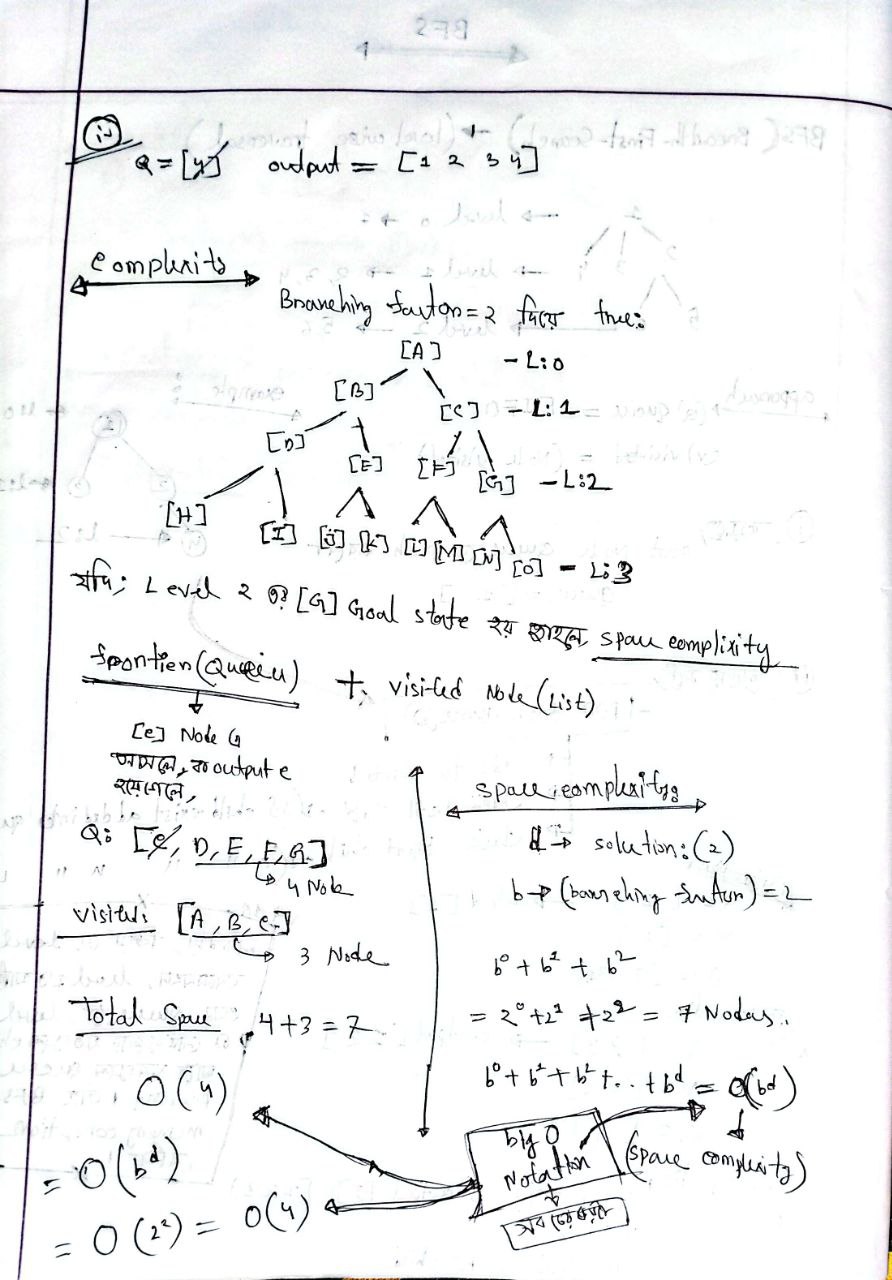 iv
Q = [4] output = [1 2 3 4]
complexity
Branching factor = 2 দিয়ে tree:
[A] - L:0
[B] [C] - L:1
[D] [E] [F] [G] - L:2
[H] [I] [J] [K] [L] [M] [N] [O] - L:3
যদি; Level 2 এর [G] Goal state হয় তাহলে space complixity
frontier (Queue) + visited Node (List)
[c] Node এ
আসলে, বা output e
হয়ে গেলে,
Q: [C, D, E, F, G.]
4 Node
visited: [A, B, C.]
3 Node
Total Space 4+3 = 7
O(4)
= O(b^d)
= O(2²) = O(4)
space complexity:
d → solution: (2)
b → (branching factor) = 2
b⁰ + b¹ + b²
= 2⁰ + 2¹ + 2² = 7 Nodes.
b⁰ + b¹ + b² + .. + b^d = O(b^d)
big O
Notation
(space complexity)